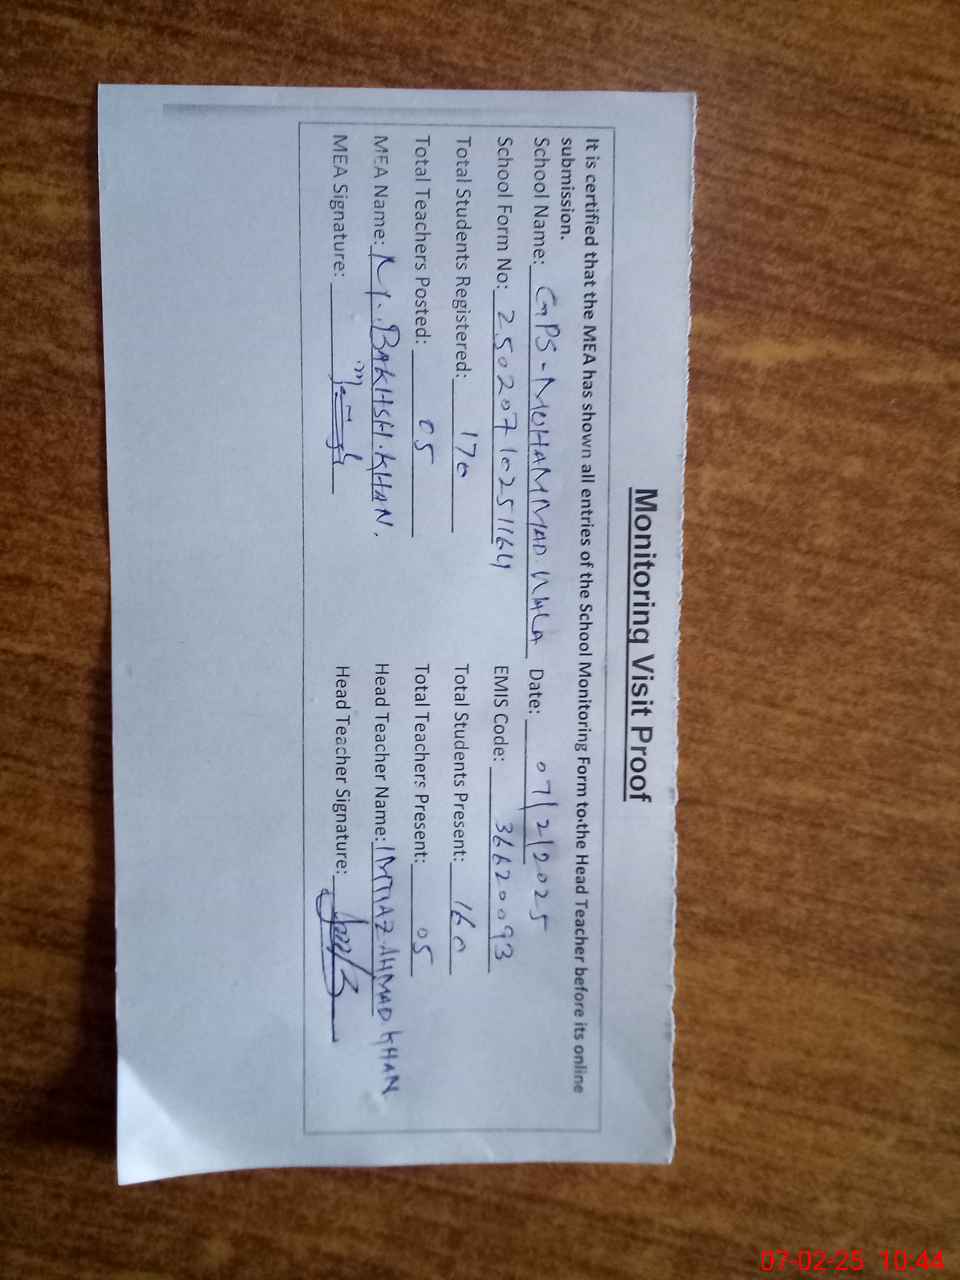 Monitoring Visit Proof
It is certified that the MEA has shown all entries of the School Monitoring Form to the Head Teacher before its online
submission.
School Name: GPS-MOHAMMAD WALA Date: 07/2/2025
School Form No: 25020710251164 EMIS Code: 36620093
Total Students Registered: 170 Total Students Present: 160
Total Teachers Posted: 05 Total Teachers Present: 05
MEA Name: M. BAKHSH. KHAN. Head Teacher Name: IMTIAZ AHMAD KHAN
MEA Signature: Head Teacher Signature:
07-02-25 10:44